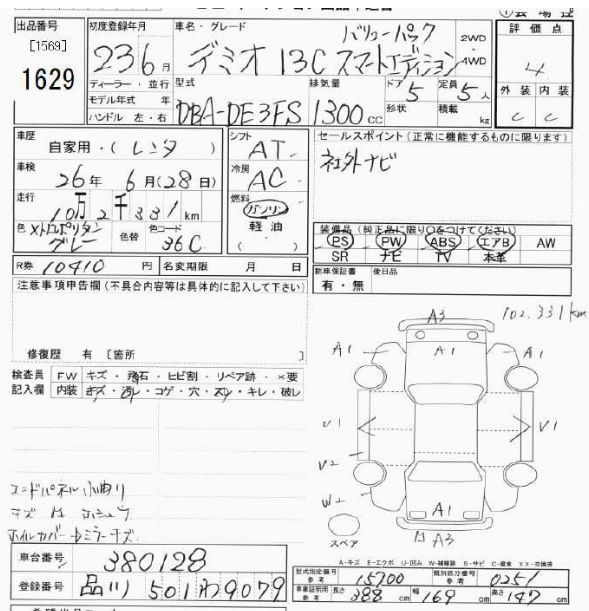 出品番号
[1569]
1629
初度登録年月
23 6 月
車名・グレード
デミオ 13C スマートエディション
バリューパック
2WD
4WD
評価点
4
外装 内装
C C
ディーラー・並行
モデル年式 年
ハンドル 左・右
型式
DBA-DE3FS
排気量
1300 cc
ドア 5
形状
定員 5 人
積載 kg
車歴
自家用・(レンタ)
車検
26 年 6 月 (28 日)
走行
10 万 2 千 331 km
色 メトロポリタングレー
色替
色コード
36C
シフト
AT
冷房
AC
燃料
ガソリン
軽油
( )
セールスポイント(正常に機能するものに限ります)
社外ナビ
装備品(純正品に限り○をつけてください)
PS PW ABS エアB AW
SR ナビ TV 本革
R券 10410 円
名変期限 月 日
新車保証書
有・無
後日品
注意事項申告欄(不具合内容等は具体的に記入して下さい)
修復歴 有 [箇所 ]
検査員
記入欄
FW キズ・飛石・ヒビ割・リペア跡・×要
内装 キズ・汚レ・コゲ・穴・スレ・キレ・破レ
102,331km
A3
A1 A1 A1
U1 V1
U2
W2
A1
A3
スペア
エンドパネル小曲り
ホイルカバー
車台番号 380128
登録番号 品川 501 わ 9079
A-キズ E-エクボ U-凹み
型式指定番号
参考
15700
類別区分番号
参考
0251
長さ 388 cm 幅 169 cm 高さ 147 cm